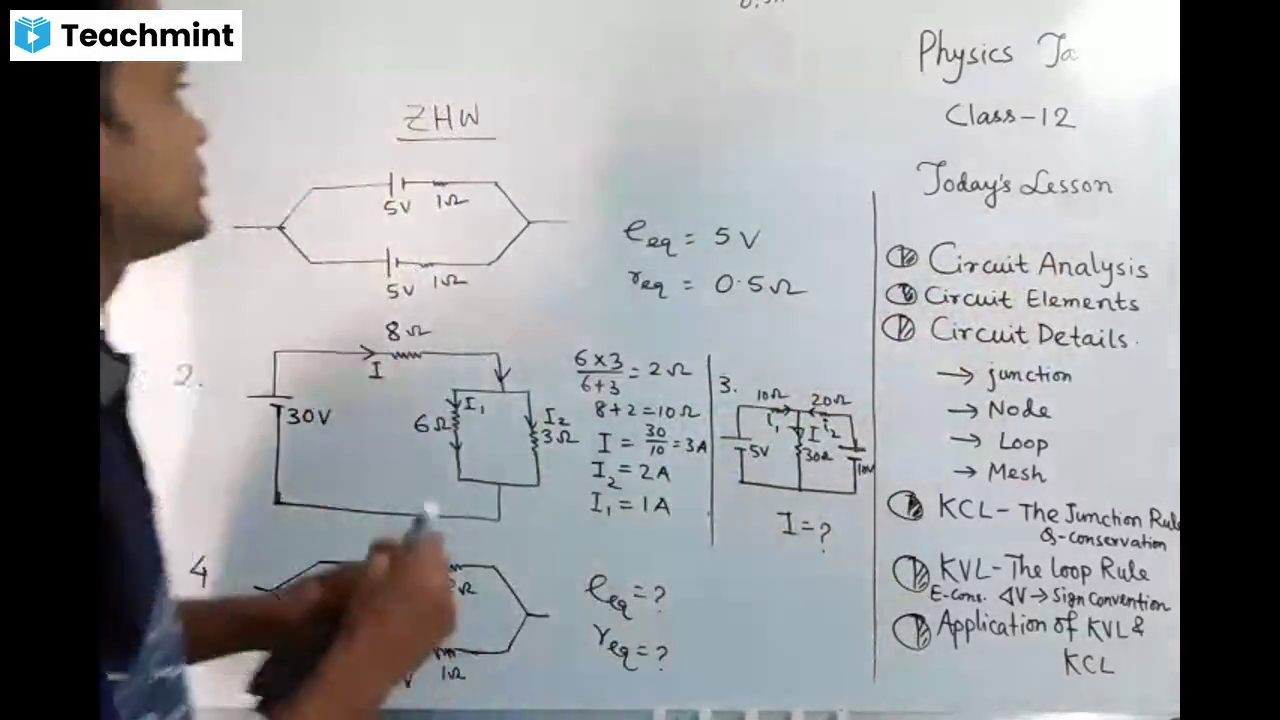 Teachmint
ZHW
5V 1Ω
5V 1Ω
e_eq = 5V
r_eq = 0.5Ω
2.
8Ω
I
30V
6Ω
I₁
I₂
3Ω
6×3/6+3 = 2Ω
8+2=10Ω
I = 30/10 = 3A
I₂ = 2A
I₁ = 1A
3.
10Ω 20Ω
i₁ I i₂
5V 30Ω 10V
I = ?
4
Ω
1Ω
e_eq = ?
r_eq = ?
Physics
Class-12
Today's Lesson
Circuit Analysis
Circuit Elements
Circuit Details.
→ junction
→ Node
→ Loop
→ Mesh
KCL - The Junction Rule
Q-conservation
KVL - The Loop Rule
E-Cons. ΔV → Sign Convention
Application of KVL &
KCL